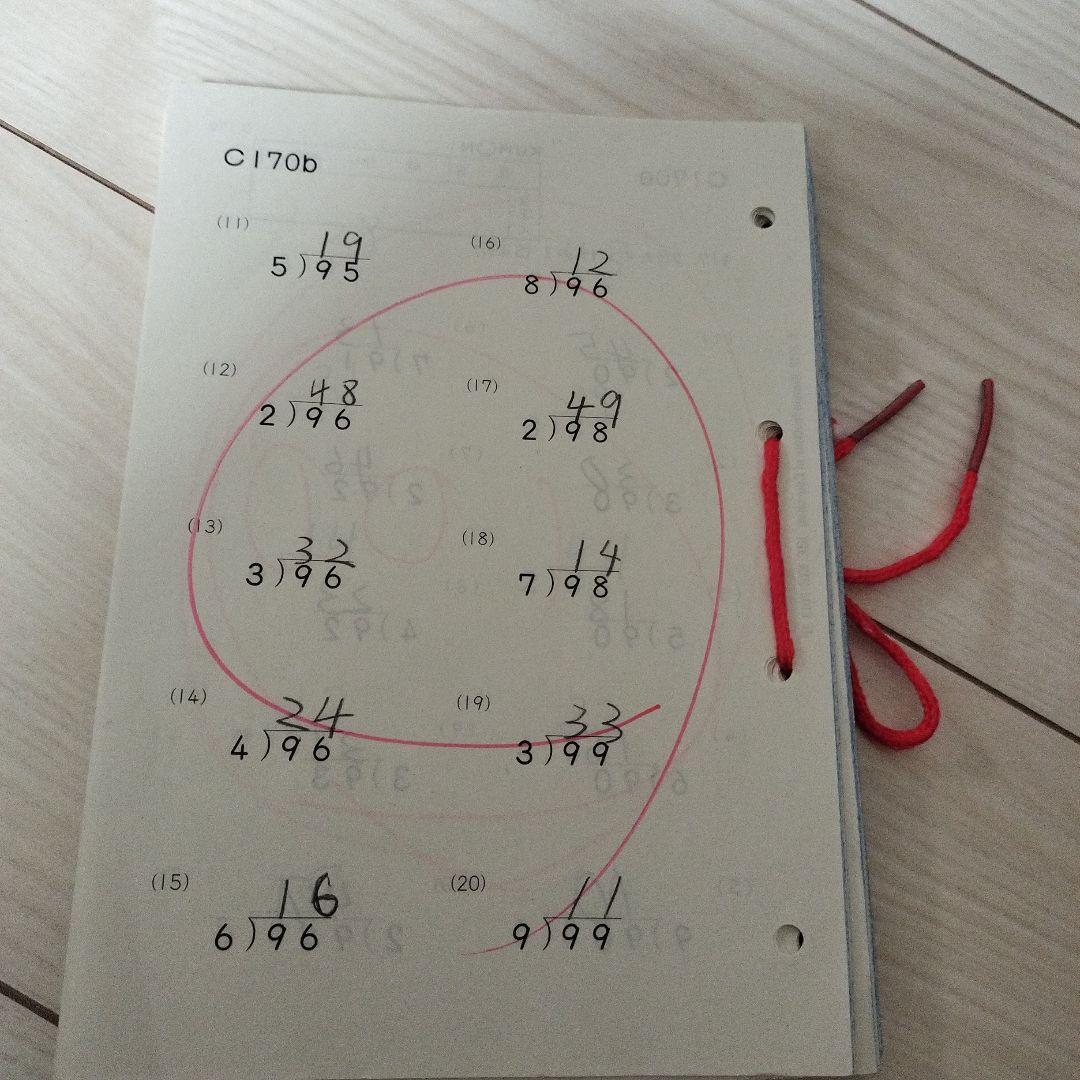 C170b
(11)
19
5)95
(12)
48
2)96
(13)
32
3)96
(14)
24
4)96
(15)
16
6)96
(16)
12
8)96
(17)
49
2)98
(18)
14
7)98
(19)
33
3)99
(20)
11
9)99